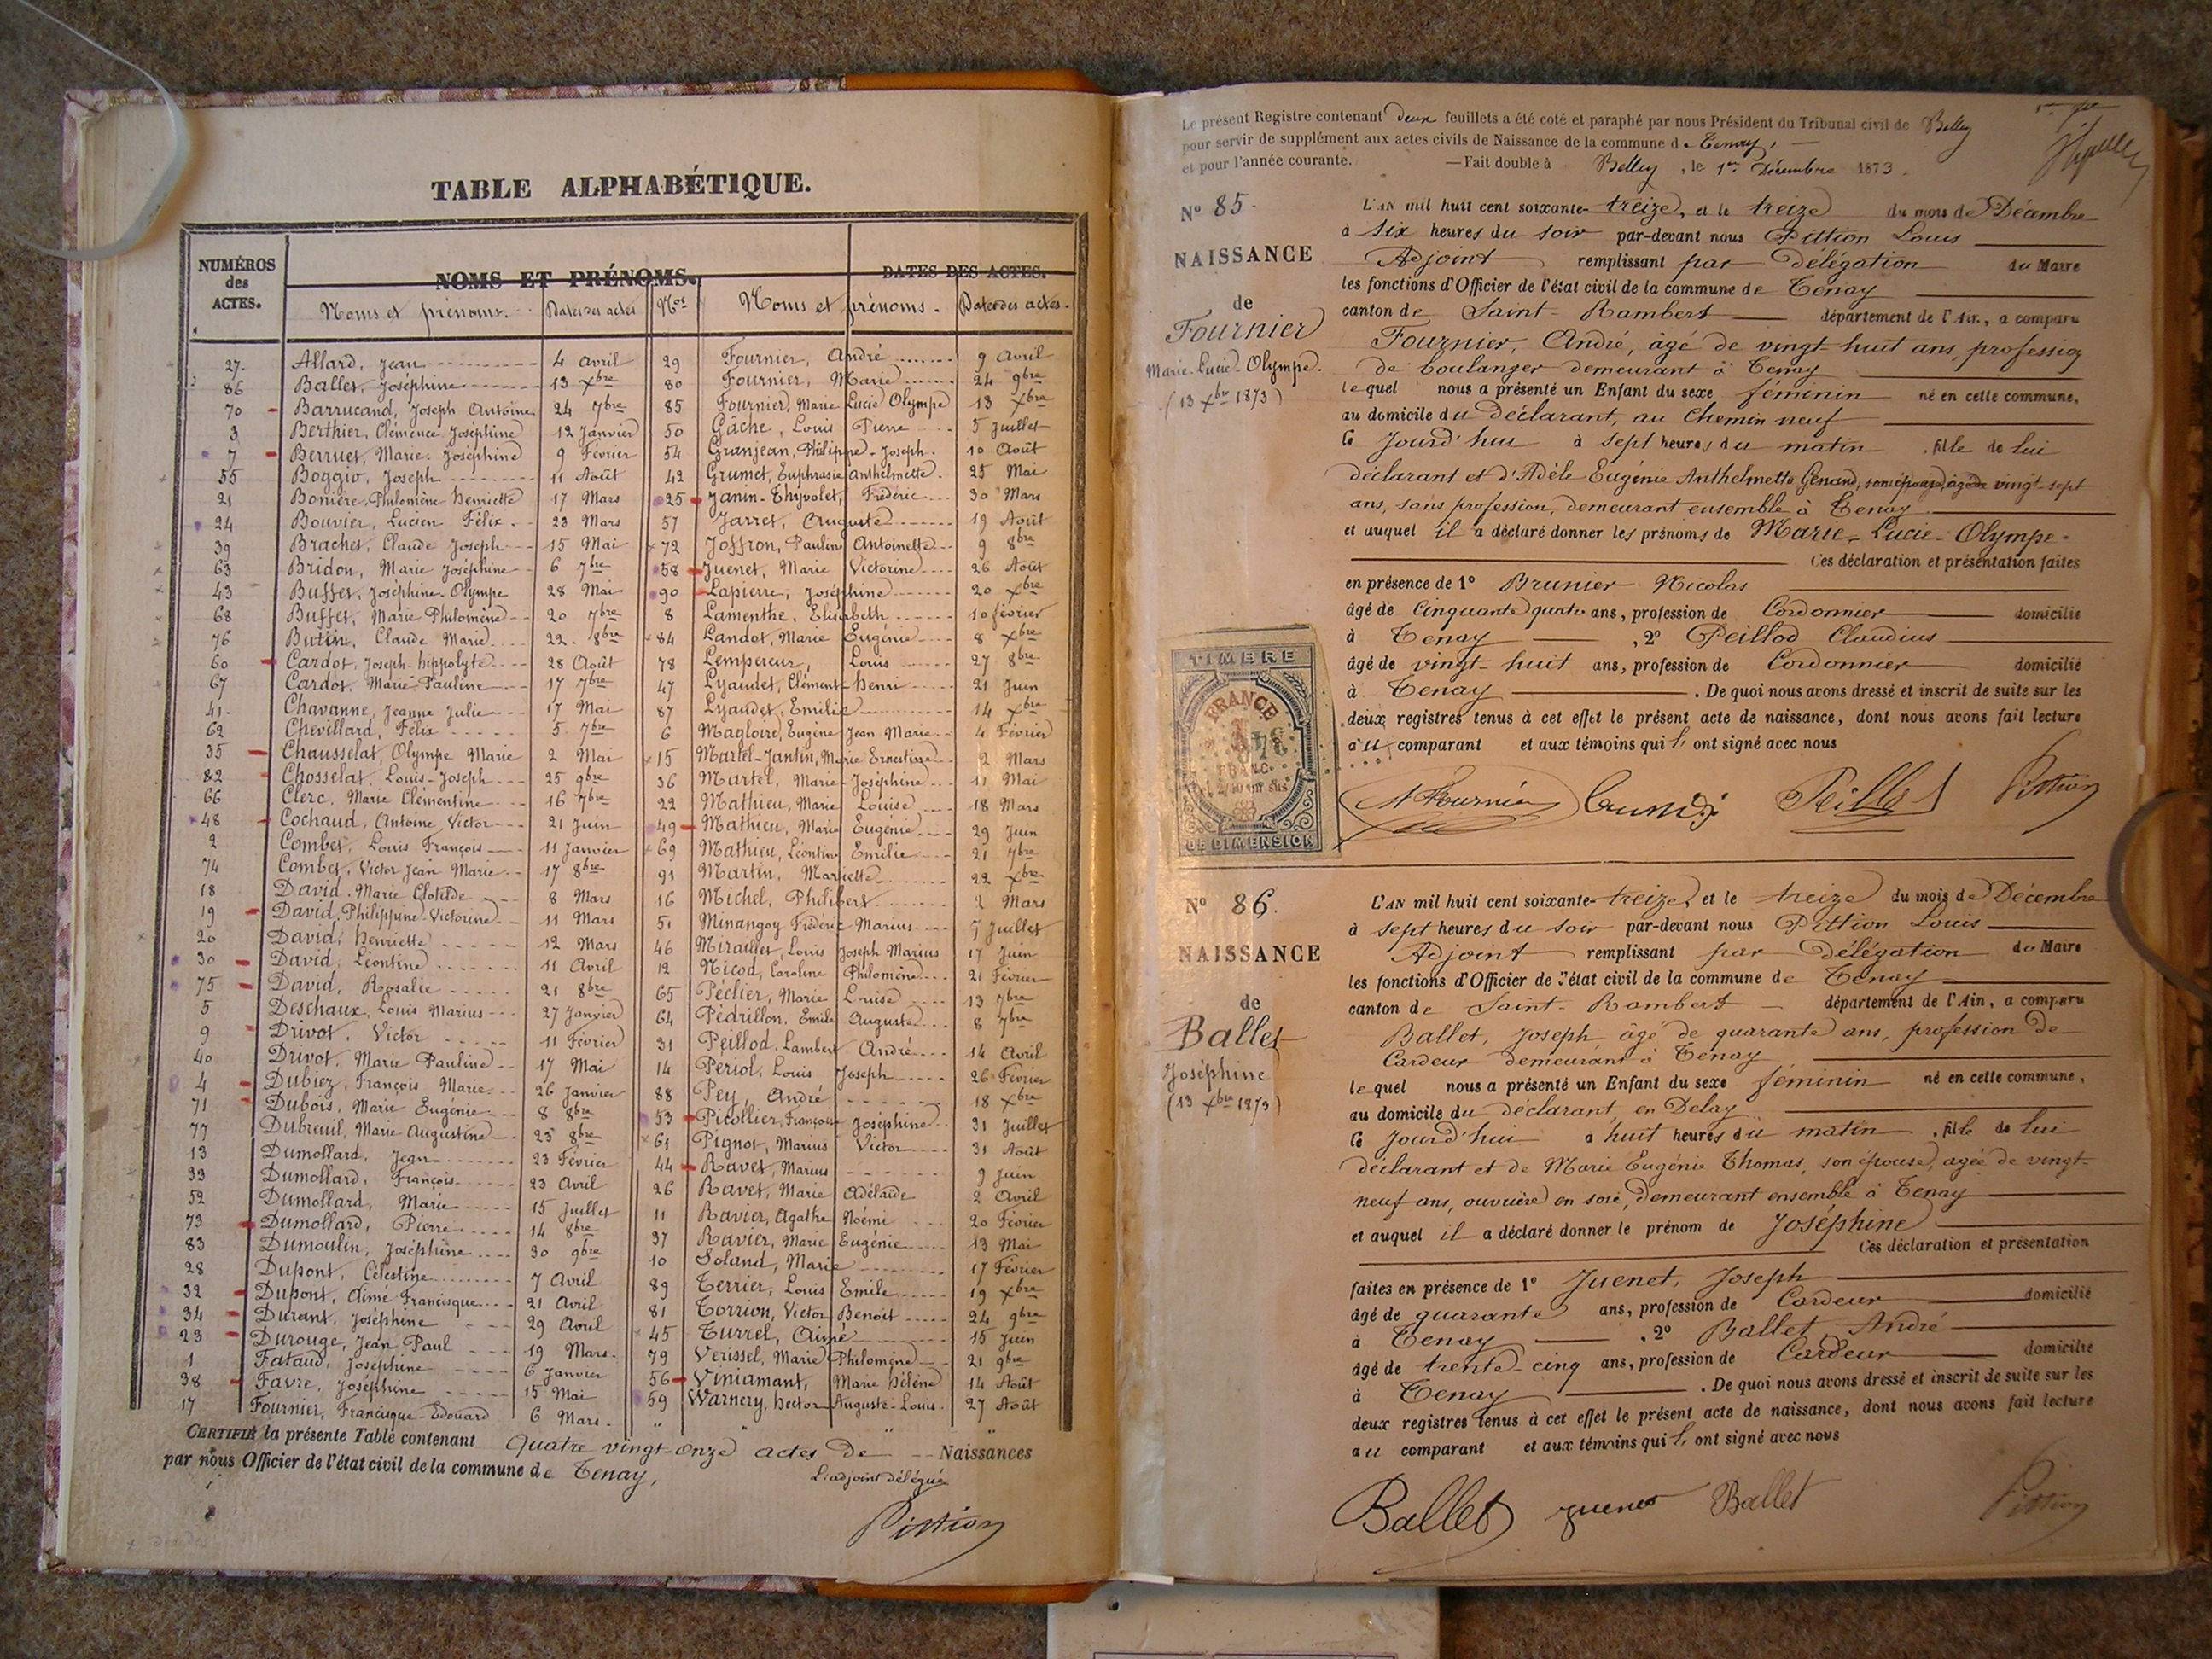 TABLE ALPHABÉTIQUE.
NUMÉROS des ACTES.
NOMS ET PRÉNOMS.
DATES DES ACTES.
Noms et prénoms. Dates des actes Nos Noms et prénoms. Dates des actes.
27. Allard, Jean 4 Avril 29 Fournier, André 9 Avril
86 Ballet, Joséphine 13 Xbre 80 Fournier, Marie 24 9bre
70 Barrucand, Joseph Antoine 24 7bre 85 Fournier, Marie Lucie Olympe 13 Xbre
3 Berthier, Clémence Joséphine 12 Janvier 50 Gache, Louis Pierre 5 Juillet
7 Berruet, Marie-Joséphine 9 Février 54 Granjean, Philippe-Joseph. 10 Août
55 Boggio, Joseph 11 Août 42 Grumet, Euphrasie Anthelmette. 25 Mai
21 Bonière, Philomène Henriette 17 Mars 25 Janin-Thyvolet, Frédéric 30 Mars
24 Bouvier, Lucien Félix. 23 Mars 57 Jarret, Auguste 19 Août
39 Brachet, Claude Joseph 15 Mai 72 Joffron, Pauline Antoinette 9 8bre
63 Bridon, Marie Joséphine 6 7bre 58 Juenet, Marie Victorine 26 Août
43 Buffet, Joséphine-Olympe 28 Mai 90 Lapierre, Joséphine 20 Xbre
68 Buffet, Marie Philomène 20 7bre 8 Lamenthe, Elisabeth 10 février
76 Butin, Claude Marie 22. 8bre 84 Landot, Marie Eugénie 8 Xbre
60 Cardot, Joseph-hippolyte 28 Août 78 Lempereur, Louis 27 8bre
67 Cardot, Marie Pauline 17 7bre 47 Lyaudet, Clément-henri 21 Juin
41. Chavanne, Jeanne Julie 17 Mai 87 Lyaudet, Emilie 14 Xbre
62 Chevillard, Félix 5 7bre 6 Magloire, Eugène Jean Marie 4 Février
35 Chausselat, Olympe Marie 2 Mai 15 Martel-Jantin, Marie Ernestine 2 Mars
82 Chosselat, Louis-Joseph 25 9bre 36 Martel, Marie-Joséphine 11 Mai
66 Clerc, Marie Clémentine 16 7bre 22 Mathieu, Marie Louise 18 Mars
48 Cochaud, Antoine Victor 21 Juin 49 Mathieu, Marie Eugénie 29 Juin
2 Combet, Louis François 11 Janvier 69 Mathieu, Léontine Emilie 21 7bre
74 Combet, Victor Jean Marie 17 8bre 91 Martin, Mariette 22 Xbre
18 David, Marie Clotilde 8 Mars 16 Michel, Philibert 2 Mars
19 David, Philippine-Victorine 11 Mars 51 Minangoy Frédéric Marius 7 Juillet
20 David, Henriette 12 Mars 46 Miraillet, Louis Joseph Marius 17 Juin
30 David, Léontine 11 Avril 12 Nicod, Caroline Philomène 21 Février
75 David, Rosalie 21 8bre 65 Péclier, Marie Louise 13 7bre
5 Deschaux, Louis Marius 27 Janvier 64 Pédrillon, Emile Auguste 8 7bre
9 Drivot, Victor 11 Février 31 Peillod, Lambert André 14 Avril
40 Drivot, Marie Pauline 17 Mai 14 Périol, Louis Joseph 26 Février
4 Dubiez, François Marie 26 Janvier 88 Pey, André 18 Xbre
71 Dubois, Marie Eugénie 8 8bre 53 Picollier, Françoise Joséphine 31 Juillet
77 Dubreuil, Marie-Augustine 23 8bre 61 Pignot, Marius Victor 31 Août
13 Dumollard, Jean 23 Février 44 Ravet, Marius 9 Juin
33 Dumollard, François 23 Avril 26 Ravet, Marie Adélaïde 2 Avril
52 Dumollard, Marie 15 Juillet 11 Ravier, Agathe Noémi 20 Février
73 Dumollard, Pierre 14 8bre 37 Ravier, Marie Eugénie 13 Mai
83 Dumoulin, Joséphine 30 9bre 10 Soland, Marie 17 Février
28 Dupont, Célestine 7 Avril 89 Terrier, Louis Emile 19 Xbre
32 Dupont, Aimé Francisque 21 Avril 81 Torrion, Victor Benoit 24 9bre
34 Durant, Joséphine 29 Avril 45 Turrel, Aimé 15 Juin
23 Durouge, Jean Paul 19 Mars. 79 Verissel, Marie Philomène 21 9bre
1 Fataud, Joséphine 6 Janvier 56 Viniamant, Marie Hélène 14 Août
38 Favre, Joséphine 15 Mai 59 Warnery, Hector Auguste-Louis. 27 Août
17 Fournier, Francisque-Edouard 6 Mars. " " "
CERTIFIÉ la présente Table contenant quatre vingt-onze actes de Naissances
par nous Officier de l'état civil de la commune de Tenay,
L'adjoint délégué
Pittion
Le présent Registre contenant deux feuillets a été coté et paraphé par nous Président du Tribunal civil de Belley
pour servir de supplément aux actes civils de Naissance de la commune de Tenay,
et pour l'année courante. —Fait double à Belley, le 1er Décembre 1873.
N° 85.
NAISSANCE
de
Fournier
Marie-Lucie-Olympe.
(13 Xbre 1873)
L'AN mil huit cent soixante-treize, et le treize du mois de Décembre
à six heures du soir par-devant nous Pittion Louis
Adjoint remplissant par délégation du Maire
les fonctions d'Officier de l'état civil de la commune de Tenay
canton de Saint-Rambert département de l'Ain, a comparu
Fournier, André, âgé de vingt-huit ans, profession
de boulanger demeurant à Tenay
lequel nous a présenté un Enfant du sexe féminin né en cette commune,
au domicile du déclarant, au Chemin neuf
le Jourd'hui à sept heures du matin, fille de lui
déclarant et d'Adèle Eugénie Anthelmette Genand, son épouse, âgée de vingt-sept
ans, sans profession, demeurant ensemble à Tenay
et auquel il a déclaré donner les prénoms de Marie-Lucie-Olympe-
Ces déclaration et présentation faites
en présence de 1° Brunier Nicolas
âgé de cinquante quatre ans, profession de Cordonnier domicilié
à Tenay, 2° Peillod Claudius
âgé de vingt-huit ans, profession de Cordonnier domicilié
à Tenay. De quoi nous avons dressé et inscrit de suite sur les
deux registres tenus à cet effet le présent acte de naissance, dont nous avons fait lecture
au comparant et aux témoins qui l'ont signé avec nous
TIMBRE
FRANCE
DE DIMENSION
A Fournier Peillod Pittion
N° 86.
NAISSANCE
de
Ballet
Joséphine
(13 Xbre 1873)
L'AN mil huit cent soixante-treize, et le treize du mois de Décembre
à sept heures du soir par-devant nous Pittion Louis
Adjoint remplissant par délégation du Maire
les fonctions d'Officier de l'état civil de la commune de Tenay
canton de Saint-Rambert département de l'Ain, a comparu
Ballet, Joseph, âgé de quarante ans, profession de
Cardeur demeurant à Tenay
lequel nous a présenté un Enfant du sexe féminin né en cette commune,
au domicile du déclarant, en Delay
le Jourd'hui à huit heures du matin, fille de lui
déclarant et de Marie Eugénie Thomas, son épouse, âgée de vingt-
neuf ans, ouvrière en soie, demeurant ensemble à Tenay
et auquel il a déclaré donner le prénom de Joséphine
Ces déclaration et présentation
faites en présence de 1° Juenet, Joseph
âgé de quarante ans, profession de Cardeur domicilié
à Tenay, 2° Ballet André
âgé de trente-cinq ans, profession de Cardeur domicilié
à Tenay. De quoi nous avons dressé et inscrit de suite sur les
deux registres tenus à cet effet le présent acte de naissance, dont nous avons fait lecture
au comparant et aux témoins qui l'ont signé avec nous
Ballet Juenet Ballet Pittion